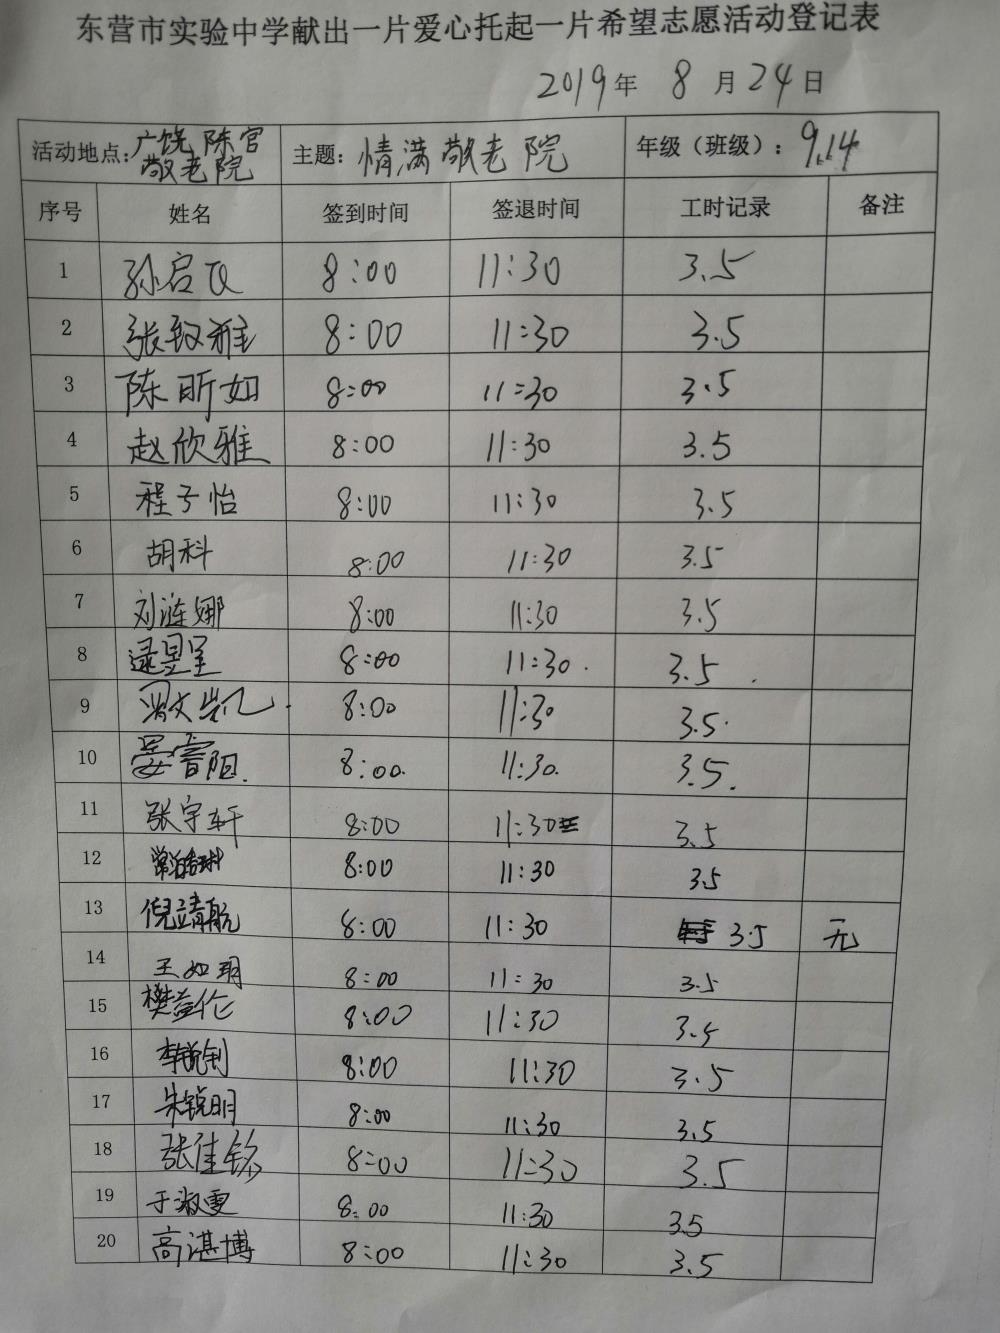 东营市实验中学献出一片爱心托起一片希望志愿活动登记表
2019年 8 月 24 日
活动地点:广饶陈官敬老院 主题:情满敬老院 年级(班级):9.14
序号 姓名 签到时间 签退时间 工时记录 备注
1 孙启 8:00 11:30 3.5
2 张致雅 8:00 11:30 3.5
3 陈昕如 8:00 11:30 3.5
4 赵欣雅 8:00 11:30 3.5
5 程子怡 8:00 11:30 3.5
6 胡科 8:00 11:30 3.5
7 刘涟娜 8:00 11:30 3.5
8 逯昱呈 8:00 11:30. 3.5.
9 文岂 8:00 11:30 3.5.
10 晏 阳. 8:00. 11:30. 3.5.
11 张宇轩 8:00 11:30 3.5
12 8:00 11:30 3.5
13 倪靖航 8:00 11:30 3.5 无
14 王如玥 8:00 11:30 3.5
15 樊益伦 8:00 11:30 3.5
16 李锐钊 8:00 11:30 3.5
17 朱锐明 8:00 11:30 3.5
18 张佳铭 8:00 11:30 3.5
19 于淑雯 8:00 11:30 3.5
20 高湛博 8:00 11:30 3.5